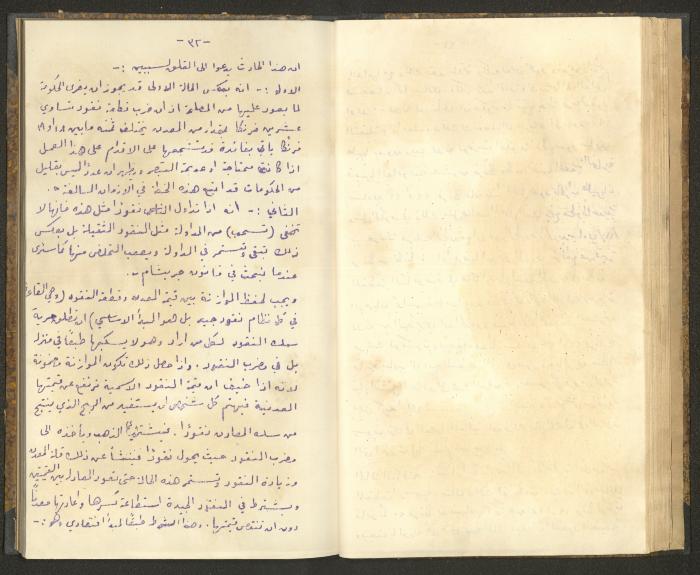 -٣٢-
ان هذا الحادث يدعوا الى القلق لسببين :-
الاول :- انه بعكس الحالة الاولى قد يجوز ان يغري الحكومة
لما يعود عليها من المصلحة اذ ان ضرب قطعة نقود تساوي
عشرين فرنكا بمقدار من المعدن يختلف ثمنه ما بين ١٨ او ١٩
فرنكا يأتي بفائدة قد تشجعها على الاقدام على هذا العمل
اذا كانت محتاجة او عديمة التبصر ويظهر ان عدداً ليس بقليل
من الحكومات قد اتبع هذه الخطة في الازمان السالفة .
الثاني :- انه اذا تداول الناس نقوداً مثل هذه فانها لا
تختفي ( تنسحب) من المداولة مثل النقود الثقيلة بل بعكس
ذلك تبقى وتستمر في المداولة ويصعب التخلص منها كما سنرى
عندما نبحث في قانون جريشام .
ويجب لحفظ الموازنة بين قيمة المعدن وقطعة النقود (وهي القاعدة
في كل نظام نقود جيد بل هو المبدأ الاساسي) ان تطلق حرية
سك النقود لكل من اراد وهو لا يسكبها طبعاً في منزله
بل في مضرب النقود . واذا حصل ذلك تكون الموازنة مضمونة
لانه اذا حدث ان قيمة النقود الاسمية ترتفع عن قيمتها
المعدنية فيهتم كل شخص ان يستفيد من الربح الذي ينتج
من سك المعادن نقوداً . فيشتري الذهب ويأخذه الى
مضرب النقود حيث يحول نقوداً فينشأ عن ذلك قلة المعدن
وزيادة النقود وتستمر هذه الحالة حتى تعود المعادلة بين القيمتين
ويشترط في النقود الجيدة استطاعة كسرها واعادتها معدناً
دون ان تنقص قيمتها . وهذا الشرط طبقاً لمبدأ اقتصادي وهو :-